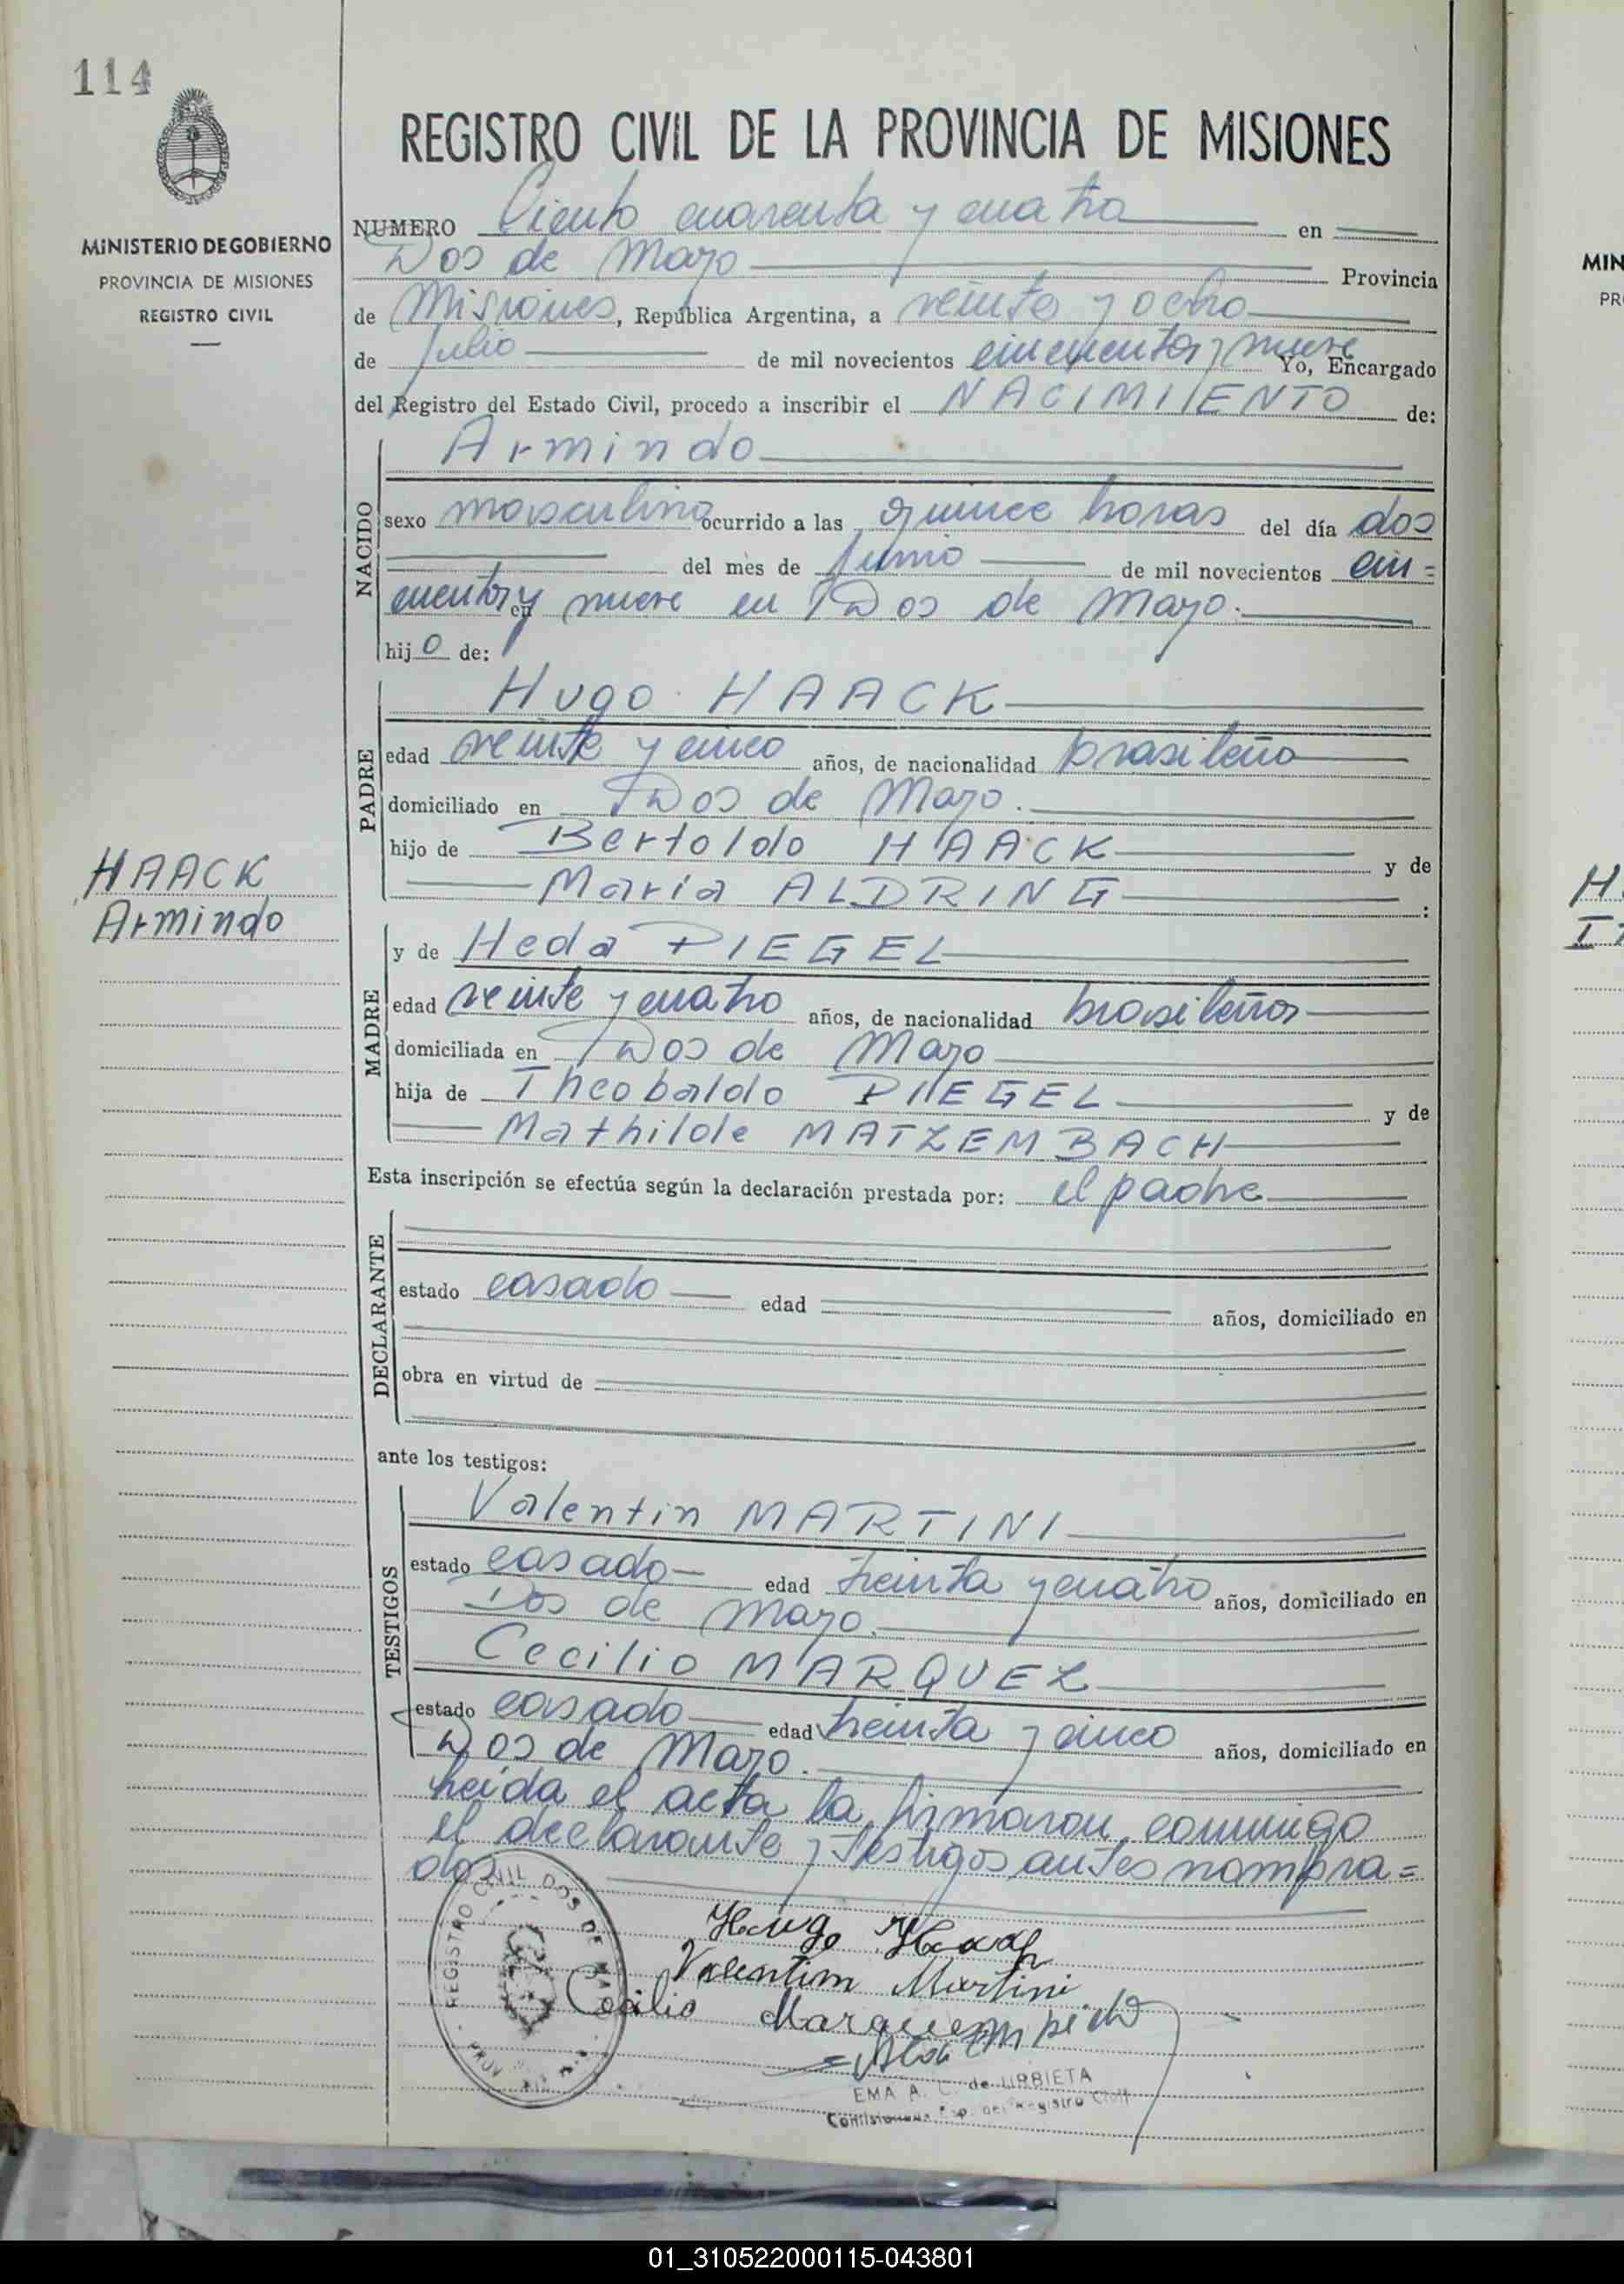 114
REGISTRO CIVIL DE LA PROVINCIA DE MISIONES
MINISTERIO DE GOBIERNO
PROVINCIA DE MISIONES
REGISTRO CIVIL
NUMERO Ciento cuarenta y cuatro en
Dos de Mayo Provincia
de Misiones, República Argentina, a veinte y ocho
de Julio de mil novecientos cincuenta y nueve Yo, Encargado
del Registro del Estado Civil, procedo a inscribir el NACIMIENTO de:
Armindo
NACIDO
sexo masculino ocurrido a las quince horas del día dos
del mes de Junio de mil novecientos cin=
cuenta y en nueve en Dos de Mayo.
hijo de:
Hugo HAACK
PADRE
edad veinte y cinco años, de nacionalidad brasileño
domiciliado en Dos de Mayo.
hijo de Bertoldo HAACK y de
Maria ALDRING :
HAACK
Armindo
y de Heda PIEGEL
MADRE
edad veinte y cuatro años, de nacionalidad brasileña
domiciliada en Dos de Mayo
hija de Theobaldo PIEGEL y de
Mathilde MATZEMBACH
Esta inscripción se efectúa según la declaración prestada por: el padre
DECLARANTE
estado casado edad años, domiciliado en
obra en virtud de
ante los testigos:
Valentin MARTINI
TESTIGOS
estado casado edad treinta y cuatro años, domiciliado en
Dos de Mayo.
Cecilio MARQUEZ
estado casado edad treinta y cinco años, domiciliado en
Dos de Mayo.
Leida el acta la firmaron conmigo
el declarante y testigos antes nombra=
dos
REGISTRO CIVIL DOS DE
Hugo Haack
Valentim Martini
Cecilio Marquez
EMA A. C. de URBIETA
del Registro Civil
MIN
PR
H
I
01_310522000115-043801